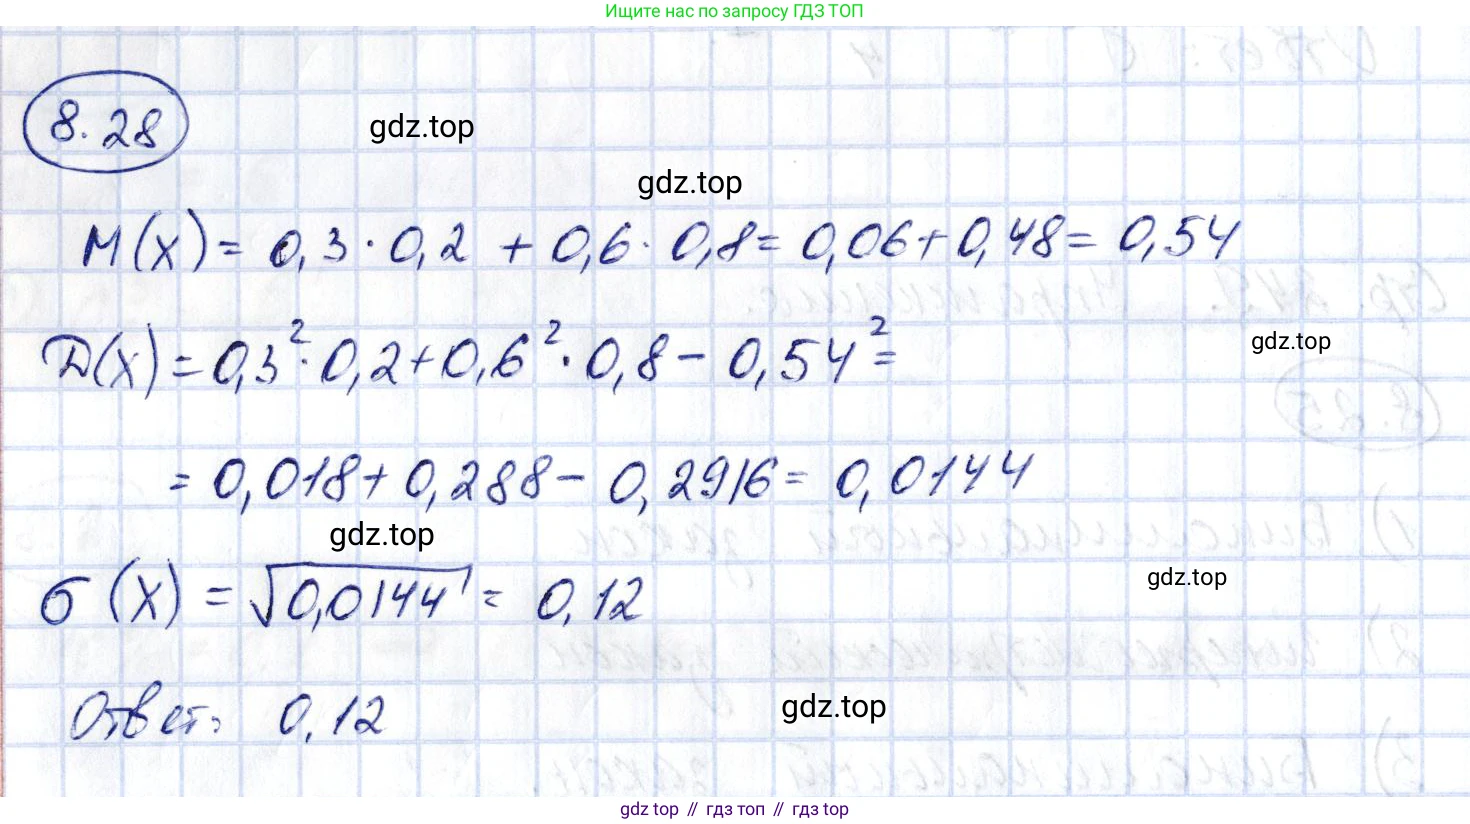 Ищите нас по запросу ГДЗ ТОП
8.28
gdz.top
gdz.top
M(X) = 0,3 · 0,2 + 0,6 · 0,8 = 0,06 + 0,48 = 0,54
D(X) = 0,3² · 0,2 + 0,6² · 0,8 − 0,54² =
gdz.top
= 0,018 + 0,288 − 0,2916 = 0,0144
gdz.top
σ(X) = √0,0144 = 0,12
gdz.top
Ответ: 0,12
gdz.top
gdz top // гдз топ // gdz top